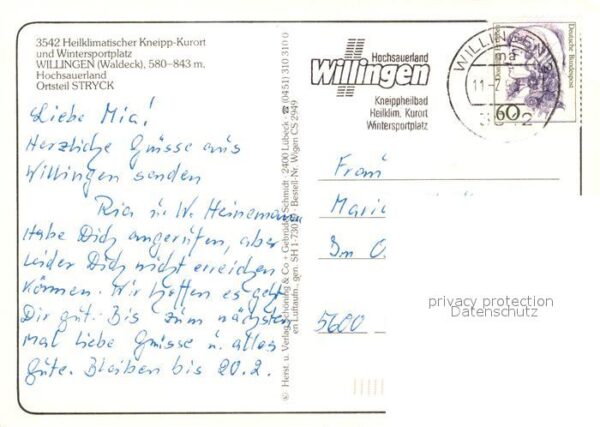 3542 Heilklimatischer Kneipp-Kurort
und Wintersportplatz
WILLINGEN (Waldeck), 580–843 m.
Hochsauerland
Ortsteil STRYCK
Liebe Mia!
Herzliche Grüsse aus
Willingen senden
Ria u. W. Heinemann
Habe Dich angerufen, aber
leider Dich nicht erreichen
können. Wir hoffen es geht
Dir gut. Bis zum nächsten
mal liebe Grüsse u. alles
gute. Bleiben bis 20.2.
© Herst. u. Verlag Schöning & Co + Gebrüder Schmidt · 2400 Lübeck · ☎ (0451) 310 310 0
en Luftaufn. gen. SH 1-730 · Bestell-Nr. Wigen CS 2949
Hochsauerland
Willingen
Kneippheilbad
Heilklim. Kurort
Wintersportplatz
WILLINGEN
11-2
Deutsche Bundespost
60
Frau
Maria
Im O
5600
privacy protection
Datenschutz